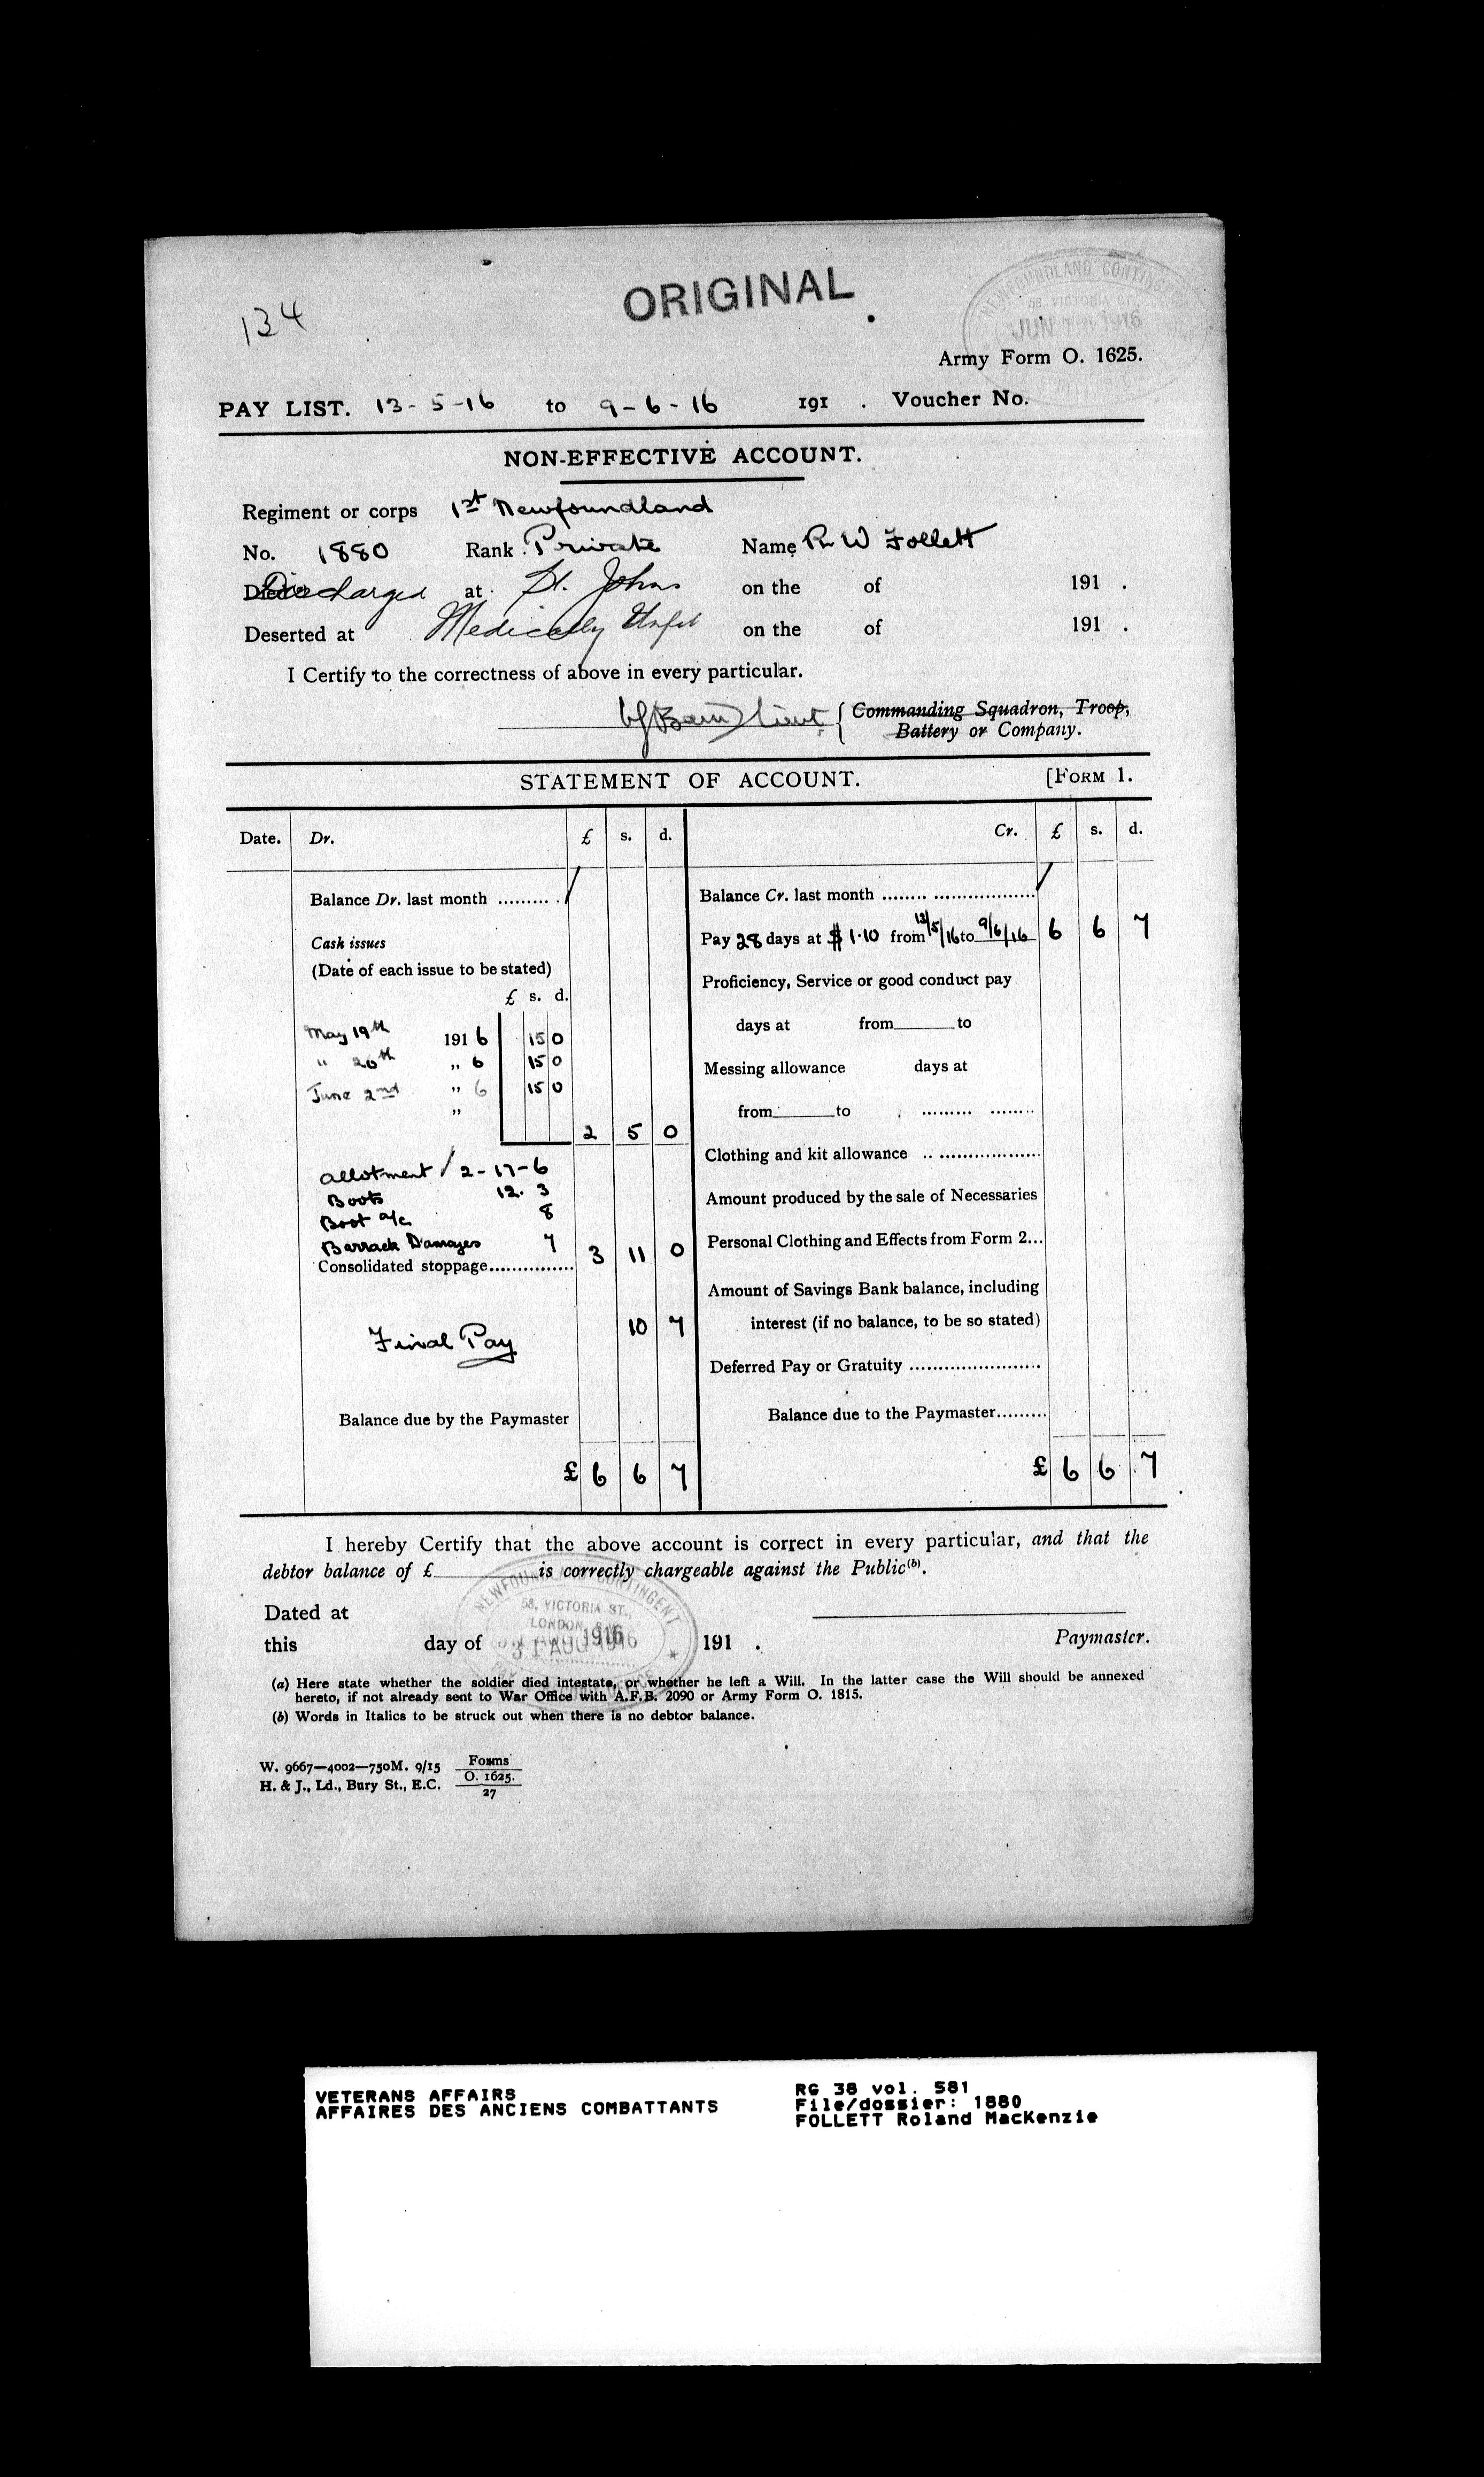 134
ORIGINAL
NEWFOUNDLAND CONTINGENT
58 VICTORIA
JUN 1916
Army Form O. 1625.
PAY LIST. 13-5-16 to 9-6-16 191 . Voucher No.
NON-EFFECTIVE ACCOUNT.
Regiment or corps 1st Newfoundland
No. 1880 Rank Private Name R W Follett
Discharged at St. Johns on the of 191 .
Deserted at Medically Unfit on the of 191 .
I Certify to the correctness of above in every particular.
Lieut { Commanding Squadron, Troop,
Battery or Company.
STATEMENT OF ACCOUNT. [FORM 1.
Date. Dr. £ s. d. Cr. £ s. d.
Balance Dr. last month .......... Balance Cr. last month ........ ..................
Cash issues Pay 28 days at $ 1.10 from 13/5/16 to 9/6/16 6 6 7
(Date of each issue to be stated) Proficiency, Service or good conduct pay
£ s. d.
days at from to
May 19th 1916 15 0
" 26th " 6 15 0 Messing allowance days at
June 2nd " 6 15 0
" from to ......... ........
2 5 0
Clothing and kit allowance .. ..................
allotment / 2-17-6
Boots 12. 3 Amount produced by the sale of Necessaries
Boot a/c 8
Barrack Damages 7 3 11 0 Personal Clothing and Effects from Form 2...
Consolidated stoppage...............
Amount of Savings Bank balance, including
Final Pay 10 7 interest (if no balance, to be so stated)
Deferred Pay or Gratuity .......................
Balance due by the Paymaster Balance due to the Paymaster.........
£ 6 6 7 £ 6 6 7
I hereby Certify that the above account is correct in every particular, and that the
debtor balance of £ is correctly chargeable against the Public(b).
NEWFOUNDLAND CONTINGENT
58, VICTORIA ST.,
LONDON, S.W.
Dated at
this day of 31 AUG 1916 191 .
Paymaster.
(a) Here state whether the soldier died intestate, or whether he left a Will. In the latter case the Will should be annexed
hereto, if not already sent to War Office with A.F.B. 2090 or Army Form O. 1815.
(b) Words in Italics to be struck out when there is no debtor balance.
W. 9667—4002—750M. 9/15 Forms
H. & J., Ld., Bury St., E.C. O. 1625.
27
VETERANS AFFAIRS
AFFAIRES DES ANCIENS COMBATTANTS
RG 38 vol. 581
File/dossier: 1880
FOLLETT Roland MacKenzie